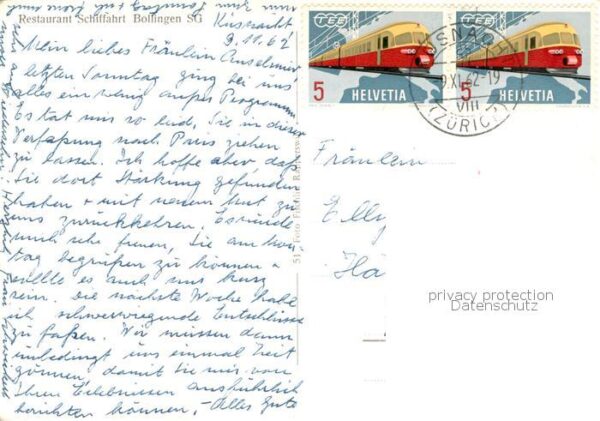 Restaurant Schiffahrt Bollingen SG
Küsnacht
9.11.62
Mein liebes Fräulein Anselmier,
letzten Sonntag ging bei uns
alles ein wenig ausser Programm.
Es tat mir so leid, Sie in dieser
Verfassung nach Paris ziehen
zu lassen. Ich hoffe aber, dass
Sie dort Stärkung gefunden
haben + mit neuem Mut zu
uns zurückkehren. Es würde
mich sehr freuen, Sie am
tag begrüssen zu können -
sollte es auch nur kurz
sein. Die nächste Woche habe
ich schwerwiegende Entschlüsse
zu fassen. Wir müssen dann
unbedingt uns einmal Zeit
gönnen, damit Sie mir von
Ihren Erlebnissen ausführlich
berichten können. - Alles Gute
auf Wiedersehen! Herzlich
51 Foto
TEE
TEE
5 HELVETIA
5 HELVETIA
KÜSNACHT
9.XI.62-19
VIII
(ZÜRICH)
Fräulein
Elly
Ha
privacy protection
Datenschutz